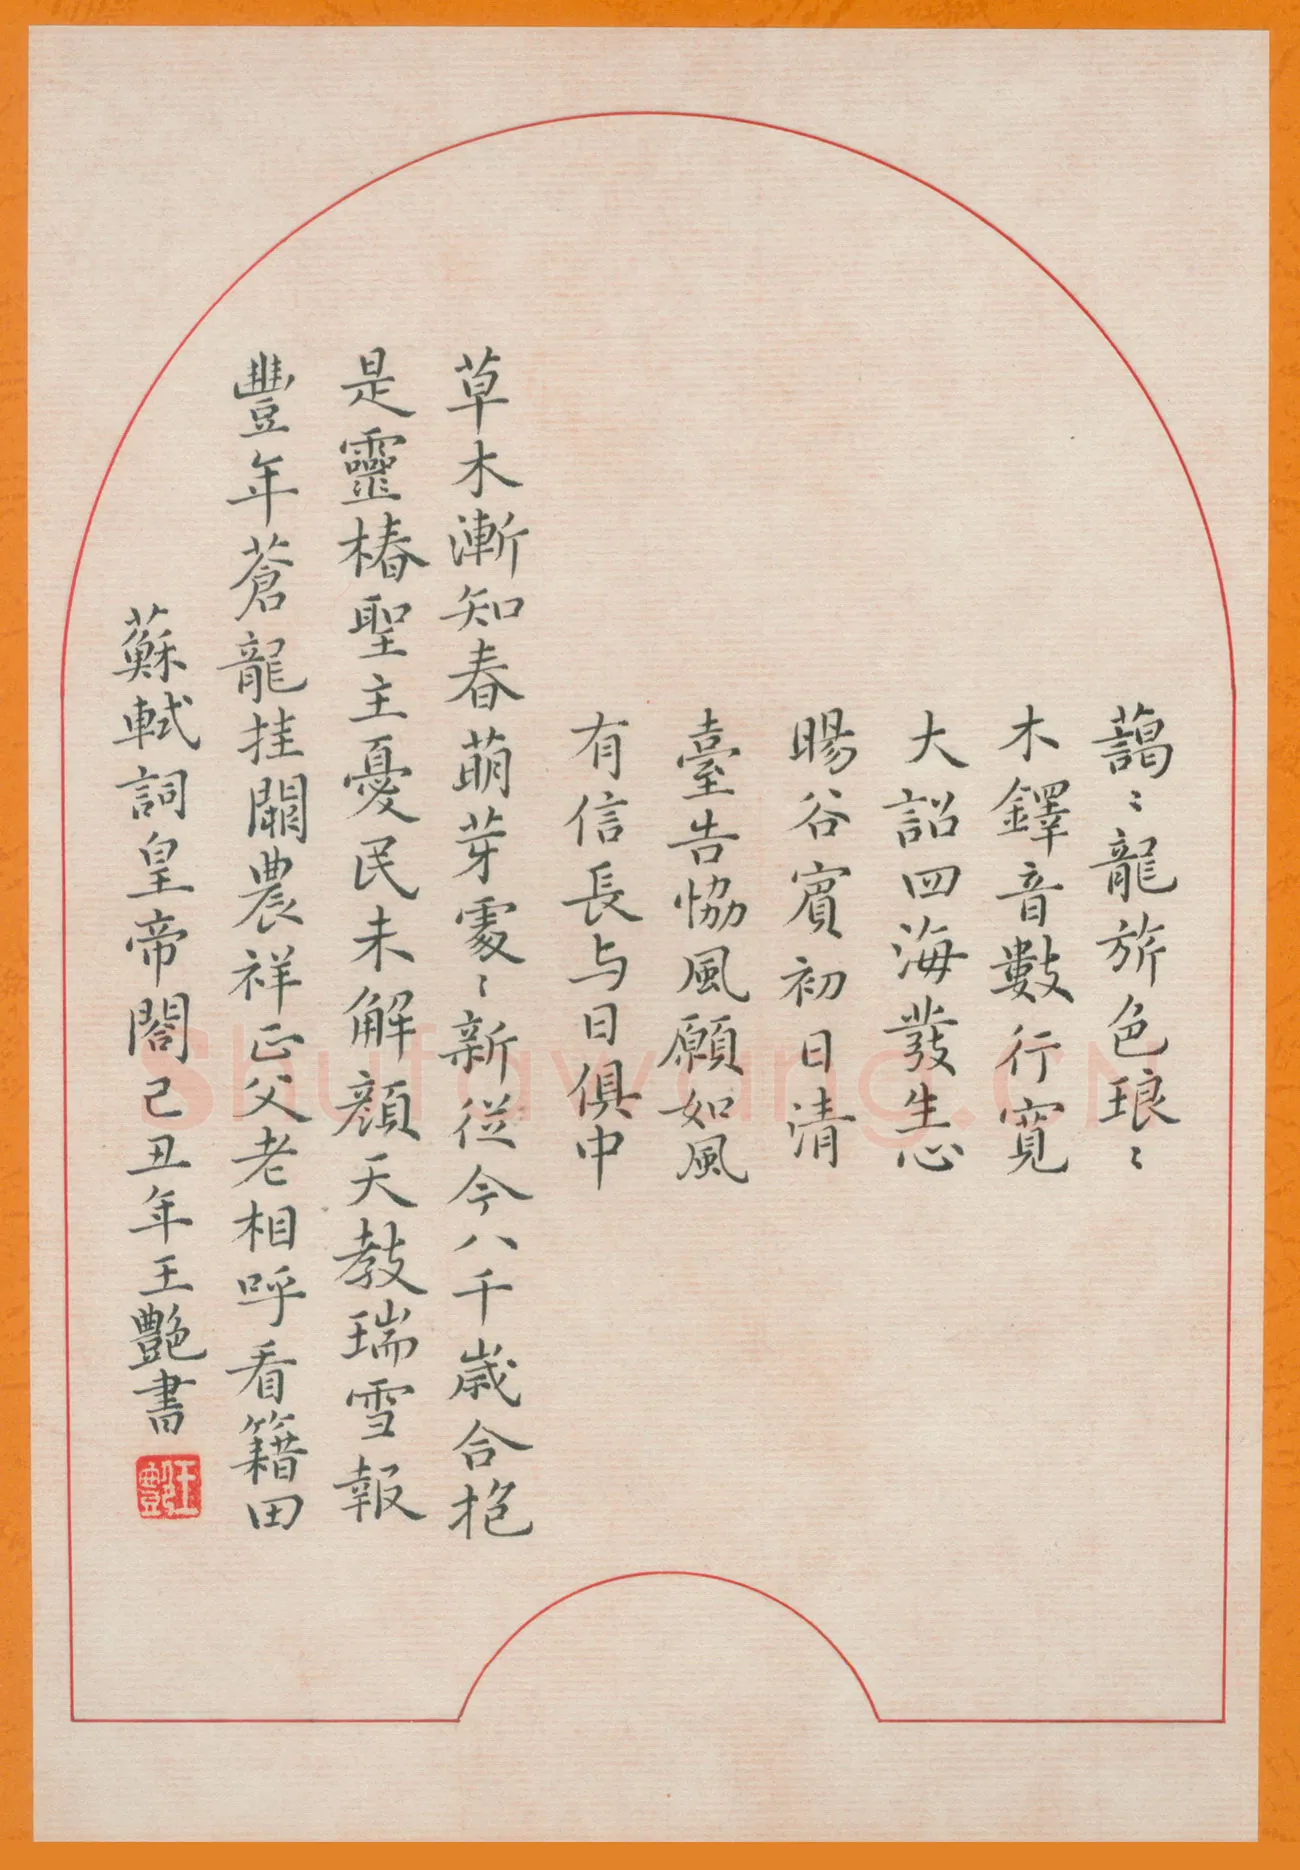 藹〻龍旂色琅〻
木鐸音數行寬
大詔四海發生心
暘谷賓初日清
臺告恊風願如風
有信長与日俱中
草木漸知春萌芽處〻新從今八千歲合抱
是靈椿聖主憂民未解顏天教瑞雪報
豐年蒼龍挂闕農祥正父老相呼看籍田
蘇軾詞皇帝閤己丑年王艷書
王艷
Shufawang.cn